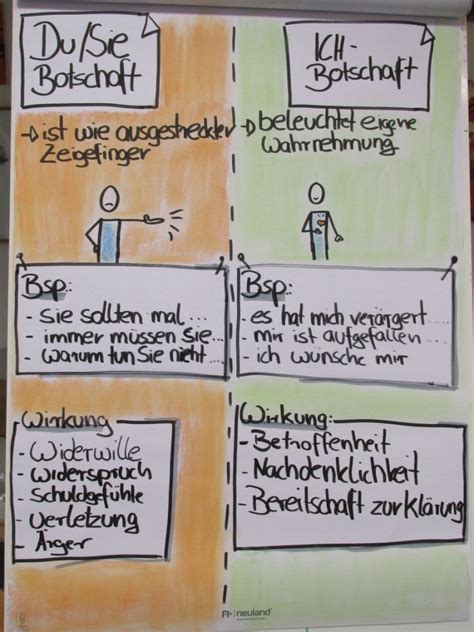 Du/Sie
Botschaft
→ ist wie ausgestreckter
Zeigefinger
Bsp:
- Sie sollten mal...
- immer müssen Sie...
- warum tun Sie nicht...
Wirkung
- Widerwille
- Widerspruch
- Schuldgefühle
- Verletzung
- Ärger
ICH-
Botschaft
→ beleuchtet eigene
Wahrnehmung
Bsp:
- es hat mich verärgert...
- mir ist aufgefallen...
- ich wünsche mir
Wirkung:
- Betroffenheit
- Nachdenklichkeit
- Bereitschaft zur Klärung
neuland